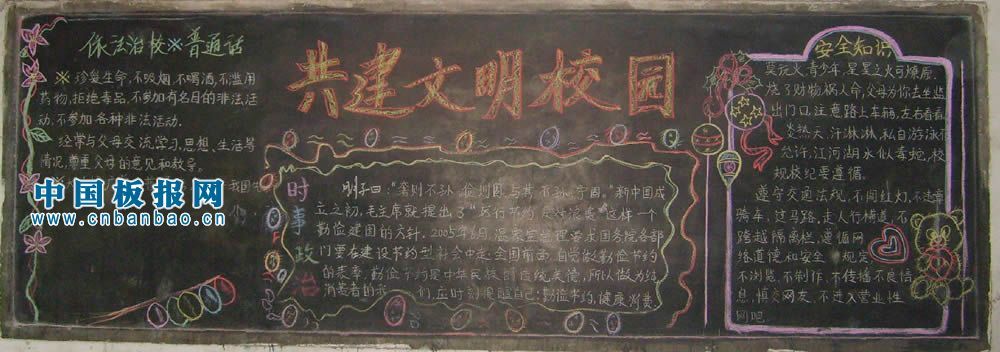 依法治校※普通话
※ 珍爱生命,不吸烟,不喝酒,不滥用
药物,拒绝毒品,不参加有名目的非法活
动,不参加各种非法活动.
经常与父母交流学习,思想,生活等
情况,尊重父母的意见和教导。
中国板报网
www.cnbanbao.cn
共建文明校园
时事政治
"奢则不孙,俭则固,与其不孙,宁固。"新中国成
立之初,毛主席就提出了"厉行节约 反对浪费"这样一个
勤俭建国的方针。2005年6月,温家宝总理要求国务院各部
门要在建设节约型社会中走全国前面,自觉做勤俭节约
的表率,勤俭节约是中华民族的传统美德,所以做为纯
消费者的 们,应时刻提醒自己:勤俭节约,健康消费
安全知识
莫玩火,青少年,星星之火可燎原。
烧了财物祸人命,父母为你去坐监
出门口,注意路上车辆,左右看看
炎热天,汗淋淋,私自游泳不
允许,江河湖水似毒蛇,校
规校纪要遵循。
遵守交通法规,不闯红灯,不违章
骑车,过马路,走人行横道,不
跨越隔离栏,遵循网
络道德和安全 规定
不浏览,不制作,不传播不良信
息,慎交网友,不进入营业性
网吧